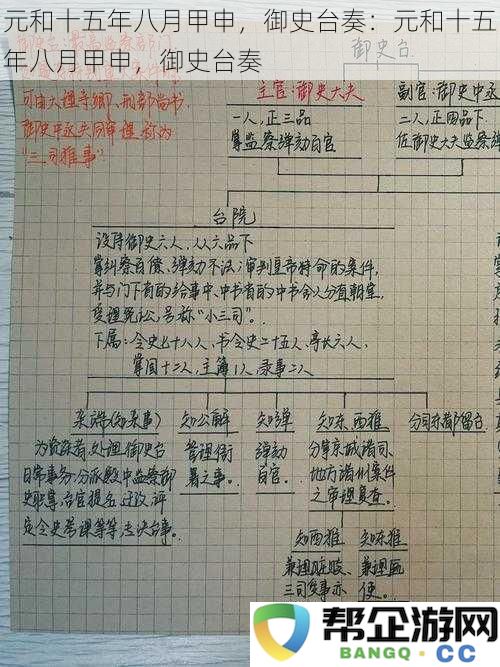 元和十五年八月甲申，御史台奏：元和十五
年八月甲申，御史台奏
御史台
可由大理寺卿、刑部尚书、
御史中丞共同审理，称为
"三司推事"
主官：御史大夫
一人，正三品
掌监察弹劾百官
副官：御史中丞
二人，正四品下
佐御史大夫监察
台院
设侍御史六人，从六品下
掌纠察百僚、弹劾不法；审判皇帝特命的案件，
并与门下省的给事中、中书省的中书舍人分直朝堂，
受理冤讼，号称"小三司"。
下属：令史七十八人、书令史二十五人、亭长六人，
掌固十二人，主簿1人，录事二人
杂端(知杂事)
为资深者，处理御史台
日常事务，分派殿中监察御
史职掌，台官提名、迁改，评
定令史考课等等，专决台事。
知公廨
管理衙
署之事。
知弹
弹劾
百官。
知东、西推
分掌京城诸司、
地方诸州案件
之审理复查。
分司东都留台
知西推
兼理赃赎、
三司受事亦
知东推
兼理匦
使。
帮企游网
BANGQ·CC